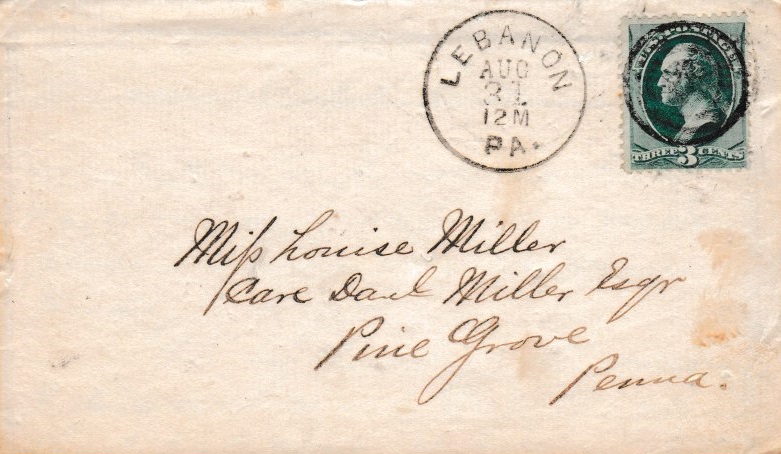 LEBANON
AUG
31
12M
PA.
U.S. POSTAGE
THREE 3 CENTS
Miss Louise Miller
Care Danl Miller Esqr
Pine Grove
Penna.